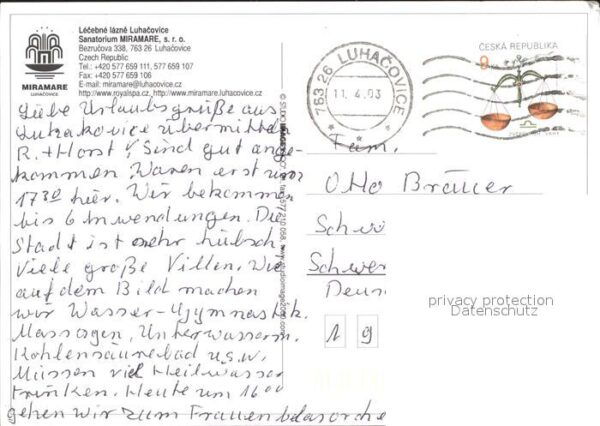 Léčebné lázně Luhačovice
Sanatorium MIRAMARE, s. r. o.
Bezručova 338, 763 26 Luhačovice
Czech Republic
Tel.: +420 577 659 111, 577 659 107
Fax: +420 577 659 106
E-mail: miramare@luhacovice.cz
http://www.royalspa.cz, http://www.miramare.luhacovice.cz
MIRAMARE
LUHAČOVICE
Liebe Urlaubsgrüße aus
Luhakovice übermitteln
R. + Horst! Sind gut ange-
kommen Waren erst um
17 30 hier. Wir bekommen
bis 6 Anwendungen. Die
Stadt ist sehr hübsch
Viele große Villen. Wie
auf dem Bild machen
wir Wasser-Gymnastik.
Massagen, Unterwasserm.
Kohlensäurebad u.s.w.
Müssen viel Heilwasser
trinken. Heute um 16 00
gehen wir zum Frauenblasorche
763 26 LUHAČOVICE
11. 4. 03
ČESKÁ REPUBLIKA
9
Fam.
Otto Bräuer
Schw
Schwe
Deu
1 9
privacy protection
Datenschutz